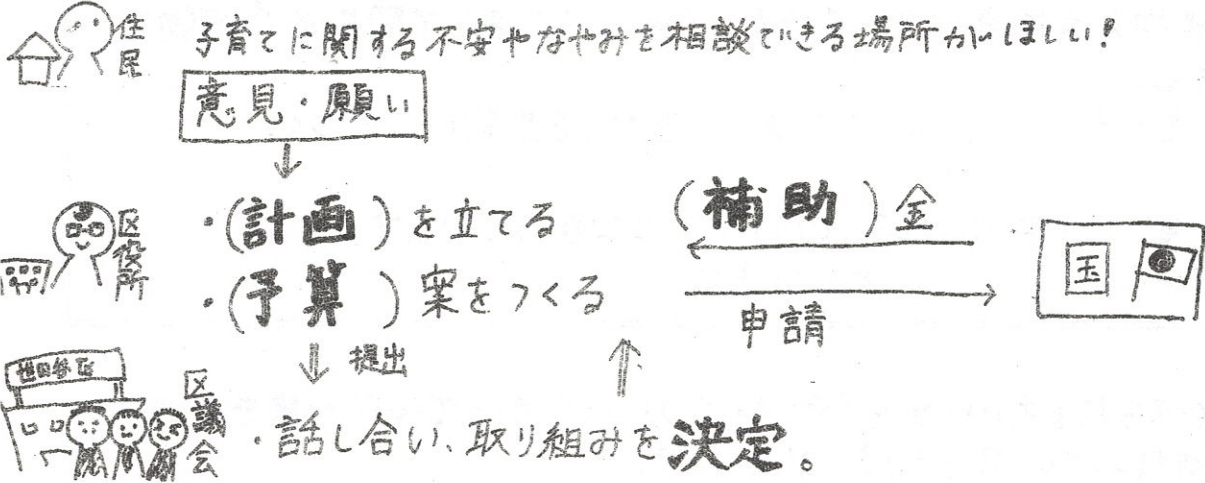 住民
子育てに関する不安やなやみを相談できる場所がほしい！
意見・願い
区役所
・(計画)を立てる
・(予算)案をつくる
(補助)金
申請
国
提出
世田谷区
区議会
・話し合い、取り組みを決定。